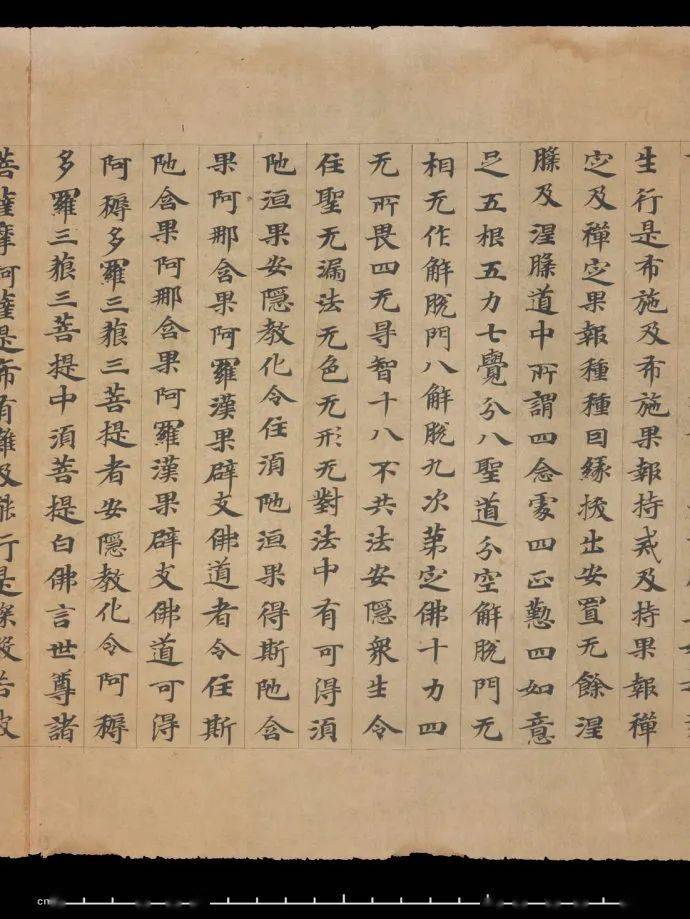 生行是布施及布施果報持戒及持果報禪
定及禪定果報種種因緣拔出安置无餘涅
槃及涅槃道中所謂四念處四正懃四如意
足五根五力七覺分八聖道分空解脫門无
相无作解脫門八解脫九次第定佛十力四
无所畏四无㝵智十八不共法安隱衆生令
住聖无漏法无色无形无對法中有可得湏
陁洹果安隱教化令住湏陁洹果得斯陁含
果阿那含果阿羅漢果辟支佛道者令住斯
陁含果阿那含果阿羅漢果辟支佛道可得
阿耨多羅三藐三菩提者安隱教化令阿耨
多羅三藐三菩提中湏菩提白佛言世尊諸
菩薩摩訶薩是希有難及能行是深般若波
cm